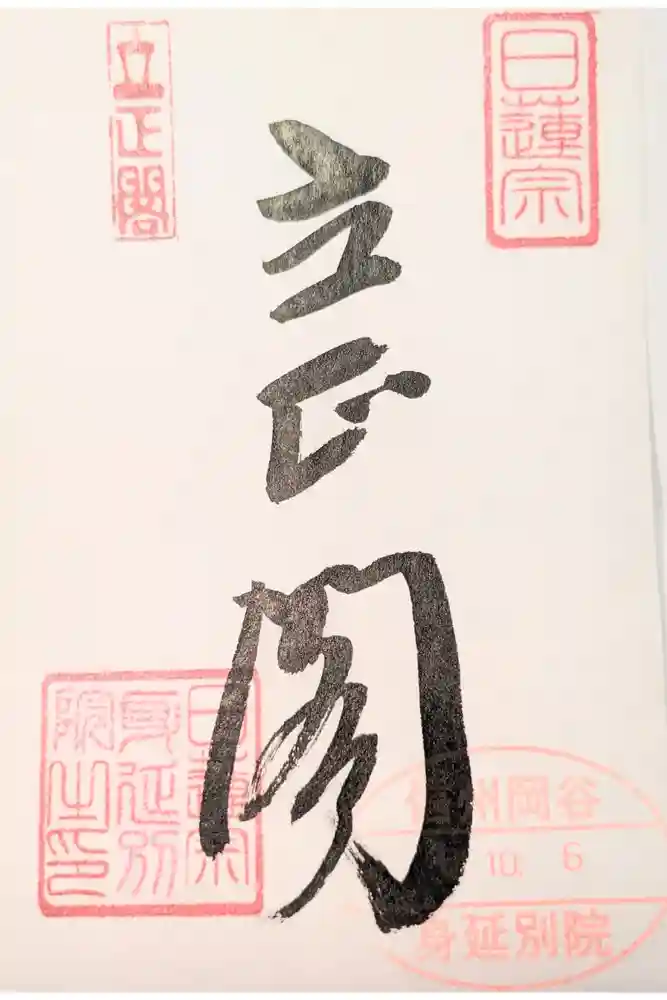 日蓮宗
立正閣
立正閣
日蓮宗
身延別
院之印
信州岡谷
10. 6
身延別院